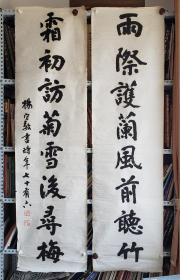 雨際護蘭風前聽竹
霜初訪菊雪後尋梅
楊守敬書時年七十有六